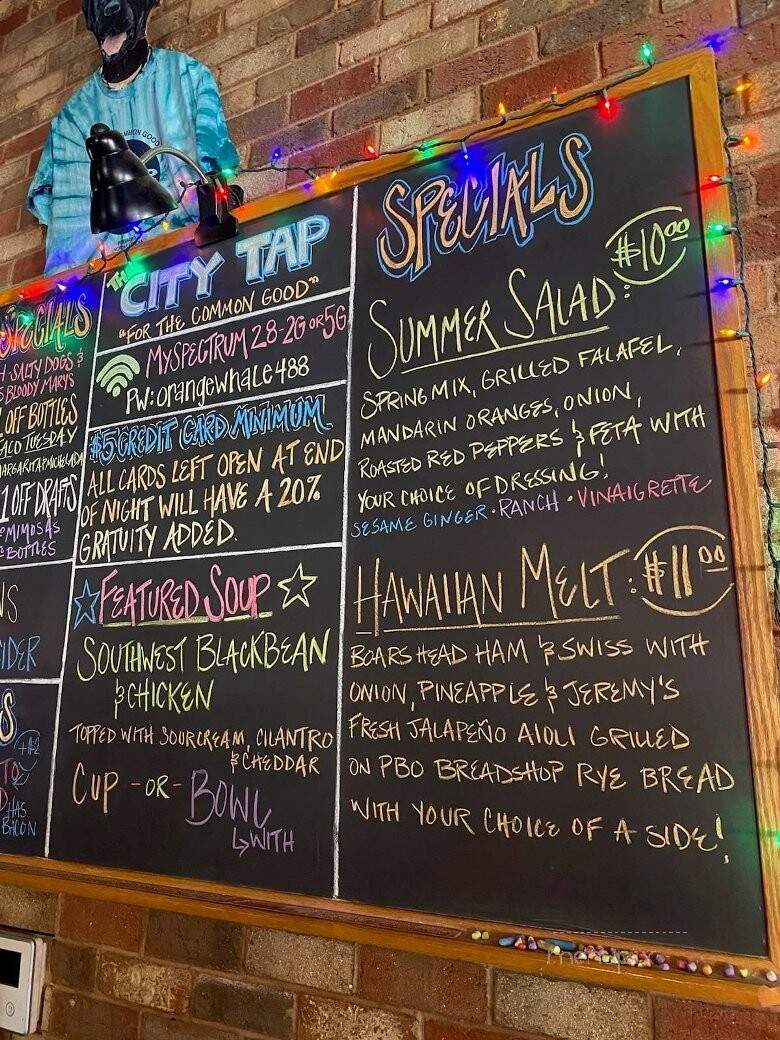 COMMON GOOD
SPECIALS
SALTY DOGS &
BLOODY MARYS
OFF BOTTLES
TACO TUESDAY
MARGARITA & MICHELADA
1 OFF DRAFTS
MIMOSAS
BOTTLES
CIDER
HAS
BACON
THE
CITY TAP
"FOR THE COMMON GOOD"
MYSPECTRUM 28-2G OR 5G
PW: orangewhale488
$5 CREDIT CARD MINIMUM
ALL CARDS LEFT OPEN AT END
OF NIGHT WILL HAVE A 20%
GRATUITY ADDED.
FEATURED SOUP
SOUTHWEST BLACKBEAN
& CHICKEN
TOPPED WITH SOURCREAM, CILANTRO
& CHEDDAR
CUP -OR- BOWL
↳ WITH
SPECIALS
SUMMER SALAD: $10.00
SPRING MIX, GRILLED FALAFEL,
MANDARIN ORANGES, ONION,
ROASTED RED PEPPERS & FETA WITH
YOUR CHOICE OF DRESSING!
SESAME GINGER · RANCH · VINAIGRETTE
HAWAIIAN MELT: $11.00
BOARS HEAD HAM & SWISS WITH
ONION, PINEAPPLE & JEREMY'S
FRESH JALAPEÑO AIOLI GRILLED
ON PBO BREADSHOP RYE BREAD
WITH YOUR CHOICE OF A SIDE!